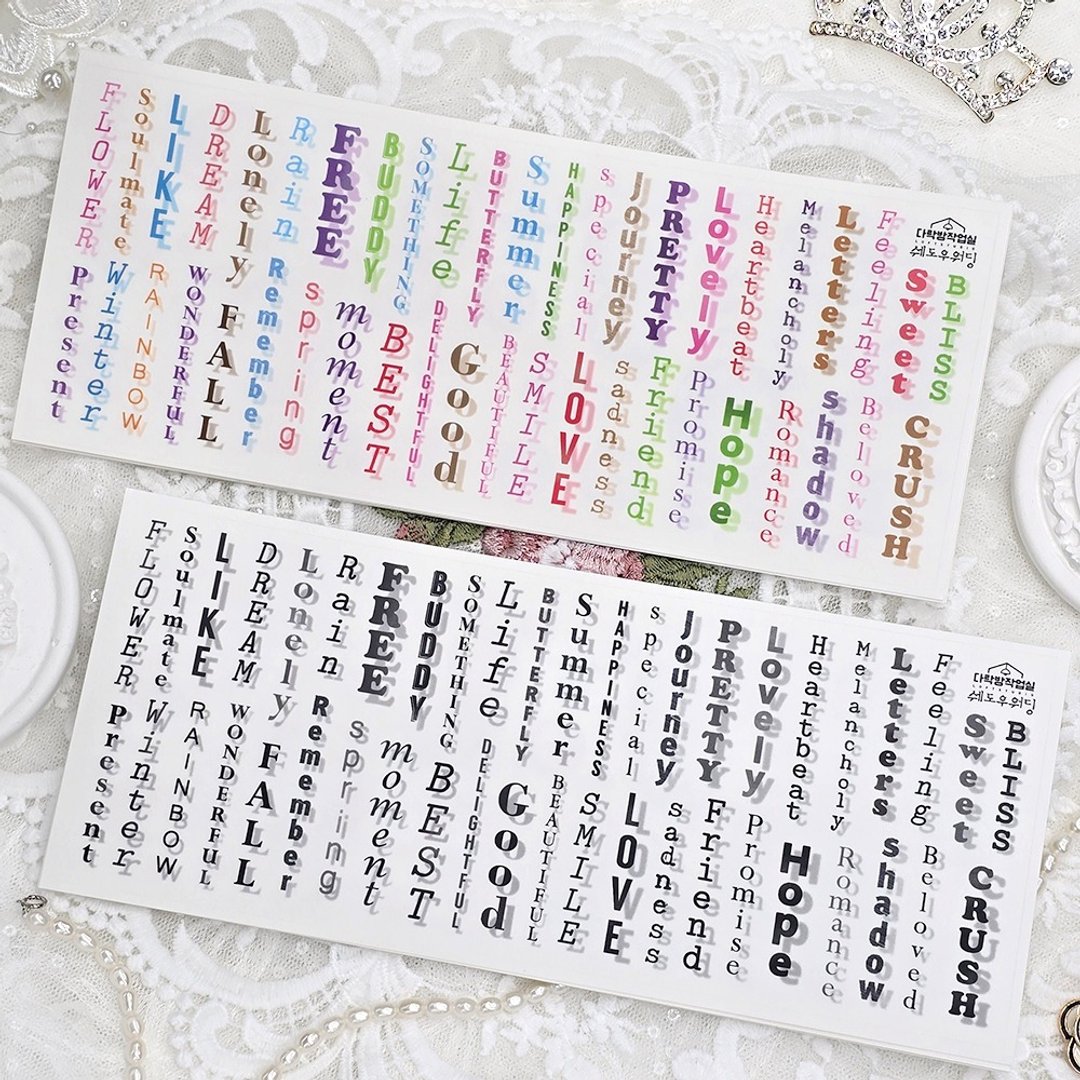 FLOWER
Soulmate
LIKE
DREAM
Lonely
Rain
FREE
BUDDY
SOMETHING
Life
BUTTERFLY
Summer
HAPPINESS
special
Journey
PRETTY
Lovely
Heartbeat
Melancholy
Letters
Feeling
다락방작업실
쉐도우워딩
BLISS
Sweet
Present
Winter
RAINBOW
WONDERFUL
FALL
Remember
spring
moment
BEST
DELIGHTFUL
Good
BEAUTIFUL
SMILE
LOVE
sadness
Friend
Promise
Hope
Romance
shadow
Beloved
CRUSH
FLOWER
Soulmate
LIKE
DREAM
Lonely
Rain
FREE
BUDDY
SOMETHING
Life
BUTTERFLY
Summer
HAPPINESS
special
Journey
PRETTY
Lovely
Heartbeat
Melancholy
Letters
Feeling
다락방작업실
쉐도우워딩
BLISS
Sweet
Present
Winter
RAINBOW
WONDERFUL
FALL
Remember
spring
moment
BEST
DELIGHTFUL
Good
BEAUTIFUL
SMILE
LOVE
sadness
Friend
Promise
Hope
Romance
shadow
Beloved
CRUSH